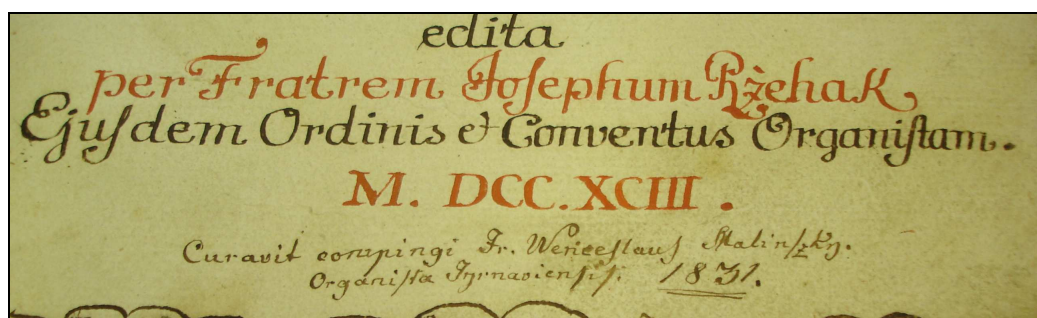 edita
per Fratrem Joſephum Rżehak
Ejuſdem Ordinis et Conventus Organiſtam.
M. DCC. XCIII.
Curavit compingi Fr. Wenceſlauſ
Organiſta Tyrnavienſiſ. 1831.